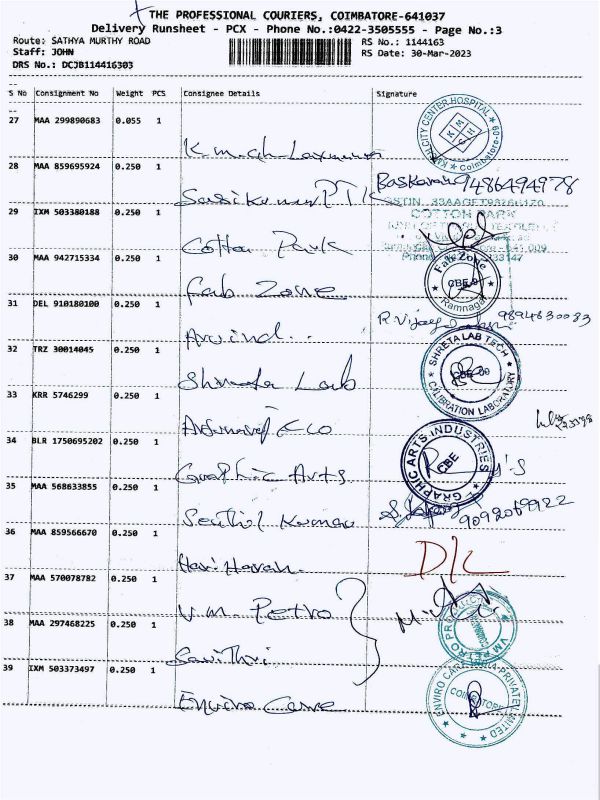 THE PROFESSIONAL COURIERS, COIMBATORE-641037
Delivery Runsheet - PCX - Phone No.:0422-3505555 - Page No.:3
Route: SATHYA MURTHY ROAD
RS No.: 1144163
Staff: JOHN
RS Date: 30-Mar-2023
DRS No.: DCJB114416303
S No Consignment No Weight PCS Consignee Details Signature
27 MAA 299890683 0.055 1
KMCH CITY CENTER HOSPITAL
Coimbatore-
28 MAA 859695924 0.250 1
Sasikumar PTK
Baskaran 9486494978
29 IXM 503380188 0.250 1
Cotton Park
COTTON PARK
30 MAA 942715334 0.250 1
Fab Zone
Fab Zone
CBE-9
Ramnagar
31 DEL 910180100 0.250 1
Arvind...
R. Vijay
9894630033
32 TRZ 30014045 0.250 1
Shreta Lab
SHRETA LAB TECH
CALIBRATION LABORATORY
33 KRR 5746299 0.250 1
Eco
34 BLR 1750695202 0.250 1
Graphic Arts
GRAPHIC ARTS INDUSTRIES
CBE
35 MAA 568633855 0.250 1
Senthil Kumar
9092069922
36 MAA 859566670 0.250 1
Hari Haran.
D/L
37 MAA 570078782 0.250 1
V.M. Petro
VM PETRO
38 MAA 297468225 0.250 1
Savithri
39 IXM 503373497 0.250 1
Enviro Care
ENVIRO CARE INDIA PRIVATE LIMITED
COIMBATORE